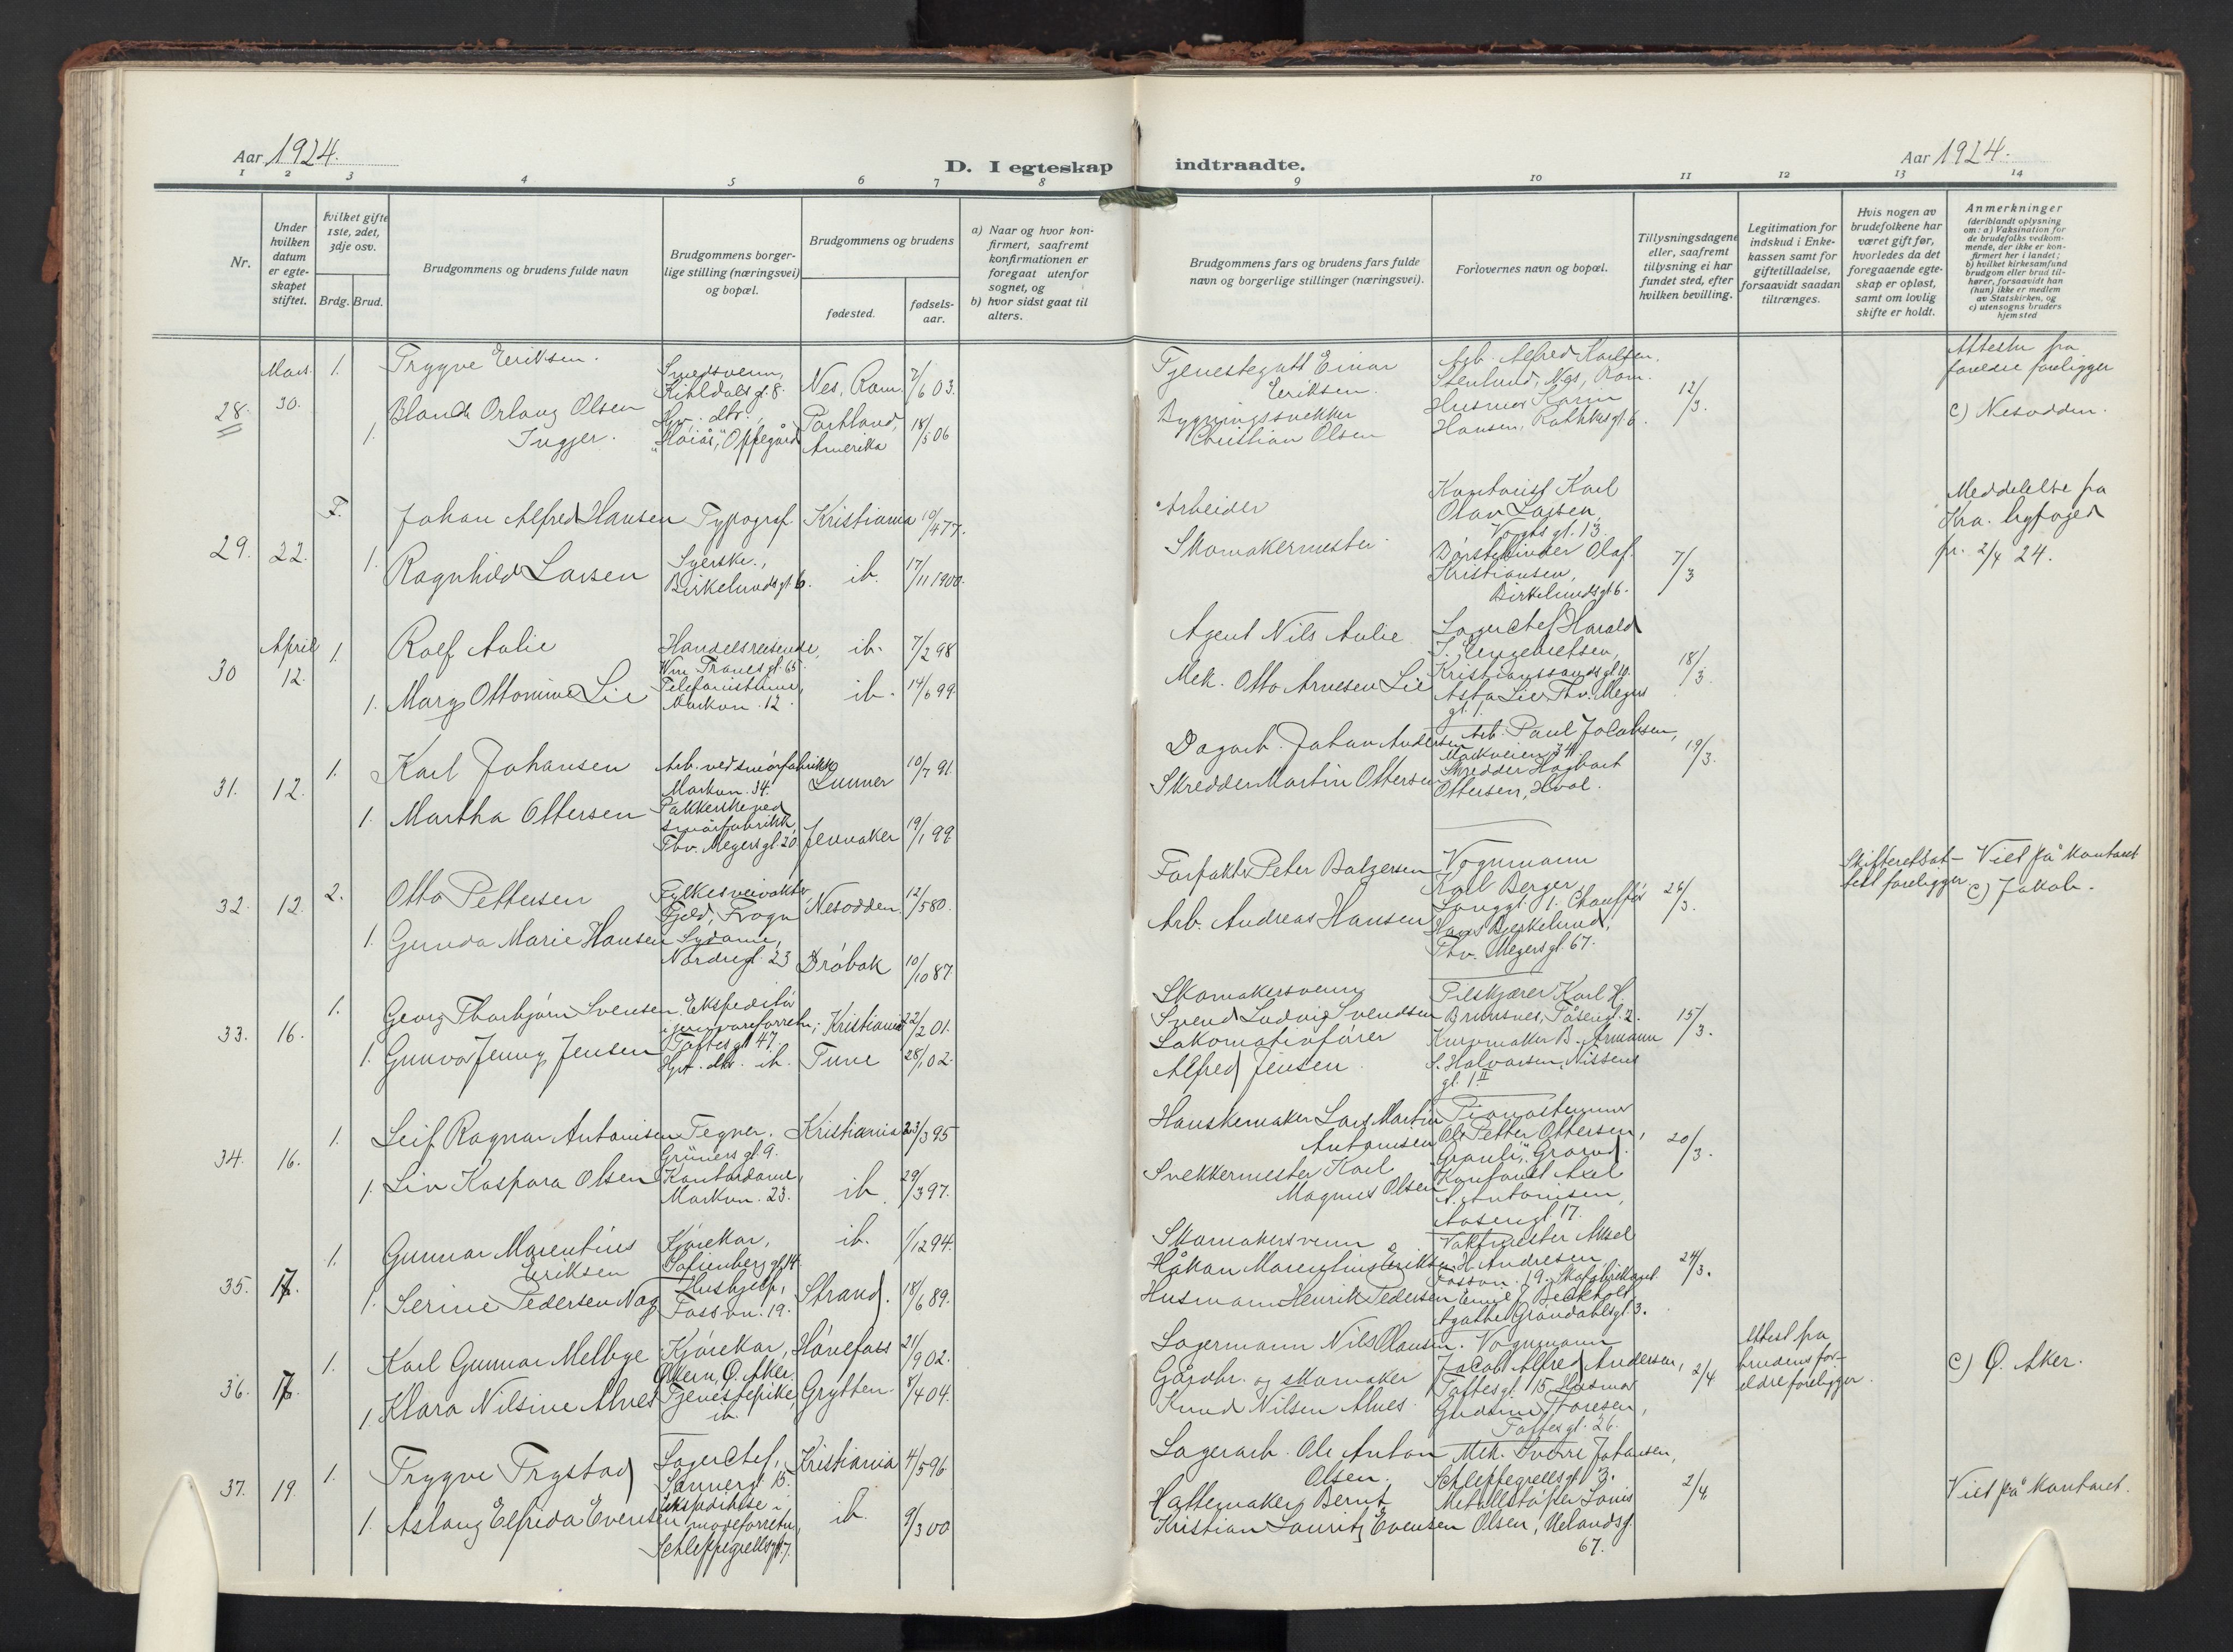 Aar 1924.
D. I egteskap indtraadte.
Aar 1924.
1 2 3 4 5 6 7 8 9 10 11 12 13 14
Nr.
Under hvilken datum er egteskapet stiftet.
Hvilket gifte 1ste, 2det, 3dje osv.
Brdg. Brud.
Brudgommens og brudens fulde navn
Brudgommens borgerlige stilling (næringsvei) og bopæl.
Brudgommens og brudens
fødested.
fødselsaar.
a) Naar og hvor konfirmert, saafremt konfirmationen er foregaat utenfor sognet, og
b) hvor sidst gaat til alters.
Brudgommens fars og brudens fars fulde navn og borgerlige stillinger (næringsvei).
Forlovernes navn og bopæl.
Tillysningsdagene eller, saafremt tillysning ei har fundet sted, efter hvilken bevilling.
Legitimation for indskud i Enkekassen samt for giftetilladelse, forsaavidt saadan tiltrænges.
Hvis nogen av brudefolkene har været gift før, hvorledes da det foregaaende egteskap er opløst, samt om lovlig skifte er holdt.
Anmerkninger
(deriblandt oplysning om: a) Vaksination for de brudefolks vedkommende, der ikke er konfirmert her i landet; b) hvilket kirkesamfund brudgom eller brud tilhører, forsaavidt han (hun) ikke er medlem av Statskirken, og c) utensogns bruders hjemsted
28. Mars 30. 1. Trygve Eriksen. Smedsvenn, Nes, Rom. 7/6 03.
1. Olsen Inger. "Høiås", Oppegård Portland, Amerika 18/5 06
Tjenestegutt Einar Eriksen.
Christian Olsen
Arb. Alfred Karlsen, Stenlund, Nes, Rom.
Husmor Karen Hansen, Rathkesgt. 6.
12/3.
Attester fra foreldre foreligger
c) Nesodden.
29. 22. F. Johan Alfred Hansen Typograf. Kristiania 10/4 77.
1. Ragnhild Larsen Syerske, Birkelundsgt. 6. ib. 17/11 1900.
Arbeider
Skomakermester
Kontorist Karl Olav Larsen, Vogtsgt. 13.
Børstebinder Olaf Kristiansen, Birkelundsgt 6.
7/3
Meddelelse fra Kra. byfoged fr. 2/4 24.
30 April 12. 1. Rolf Aulie Handelsreisende, Wm. Tranesgt. 65. ib. 7/2 98
1. Marg Ottomine Lie Telefonistinne, Markvn. 12. ib. 14/6 99.
Agent Nils Aulie
Mek. Otto Arnesen Lie
Lagerchef Harald J. Engebretsen, Kristianssandsgt. 10.
Asta Lie, Thv. Meyers gt. 1.
18/3.
31. 12. 1. Karl Johansen Arb. ved smørfabrikk Markvn. 34. Lunner 10/7 91.
1. Martha Ottersen Pakkerske ved smørfabrikk, Thv. Meyersgt. 20, Jevnaker 19/1 99.
Dagarb. Johan Andersen
Skredder Martin Ottersen
Arb. Paul Jacobsen, Markveien 34.
Skredder Hagbart Ottersen, Hval.
19/3.
32. 12. 2. Otto Pettersen Fylkesveivokter, Fjeld, Frogn Nesodden. 12/5 80.
1. Gunda Marie Hansen Sydame, Nordregt. 23 Drøbak 10/10 87
Peter Balzersen
Arb. Andreas Hansen
Vognmann Karl Berger, Langgt. 1. Chauffør Hans Bjerkelund, Thv. Meyersgt. 67.
26/3.
Skifteretsattest foreligger
Viet på kontoret
c) Jakob.
33. 16. 1. Georg Thorbjørn Svensen. Ekspeditør i jernvareforretn., Toftesgt 47. Kristiania 22/2 01.
1. Gunvor Jenny Jensen Hpt. dtr. ib. Tune 28/1 02.
Skomakersvenn Svend Ludvig Svendsen
Lokomotivfører Alfred Jensen.
Karl H. Brunsnes, Tåsengt. 2.
Kurvmaker B. S. Halvorsen, Nissens gt. 1 II
15/3.
34. 16. 1. Leif Ragnar Antonisen Tegner. Grünersgt. 9. Kristiania 23/3 95
1. Liv Kaspara Olsen Kontordame, Markvn. 23. ib. 29/3 97.
Hanskemaker Lars Martin Antonisen
Svekkermester Karl Magnus Olsen
Pianostemmer Ole Petter Ottersen, "Granli", Grorud.
Kontorist Axel A. Antonisen, Aasengt. 17.
20/3.
35. 17. 1. Gunnar Marentius Eriksen Kjørekar, Sofienberggt. 14. ib. 1/12 94.
1. Serine Pedersen Nag Hushjelp, Fossvn. 19. Strand. 18/6 89.
Skomakersvenn Håkon Marentius Eriksen
Husmann Henrik Pedersen
Vaktmester Aksel H. Andresen, Fossvn. 19. Skofabrikant Emil J. Beckholt, Agathe Grøndahlsgt. 3.
24/3.
36. 17. 1. Karl Gunnar Melbye Kjørekar, Økern, Ø. Aker. Hønefoss 21/9 02.
1. Klara Nilsine Alnes Tjenestepike, ib. Grytten. 8/4 04.
Lagermann Nils Olausen.
Gårdbr. og skomaker Knud Nilsen Alnes.
Vognmann Jacob Alfred Andersen, Toftesgt. 15. Husmor Thoresen, Toftesgt. 26.
2/4
Attest fra brudens foreldre foreligger.
c) Ø. Aker.
37. 19. 1. Trygve Trystad Lagerchef, Sannergt. 15. Kristiania 4/5 96.
1. Aslaug Elfrida Evensen Ekspeditrise i moteforretn., Schleppegrellsgt. 7. ib. 9/3 00
Lagerarb. Ole Anton Olsen.
Hattemaker Bernt Kristian Lauritz Evensen
Mek. Sverre Johansen, Schleppegrellsgt. 3.
Metallstøper Louis Olsen, Uelandsg. 67.
2/4.
Viet på kontoret.